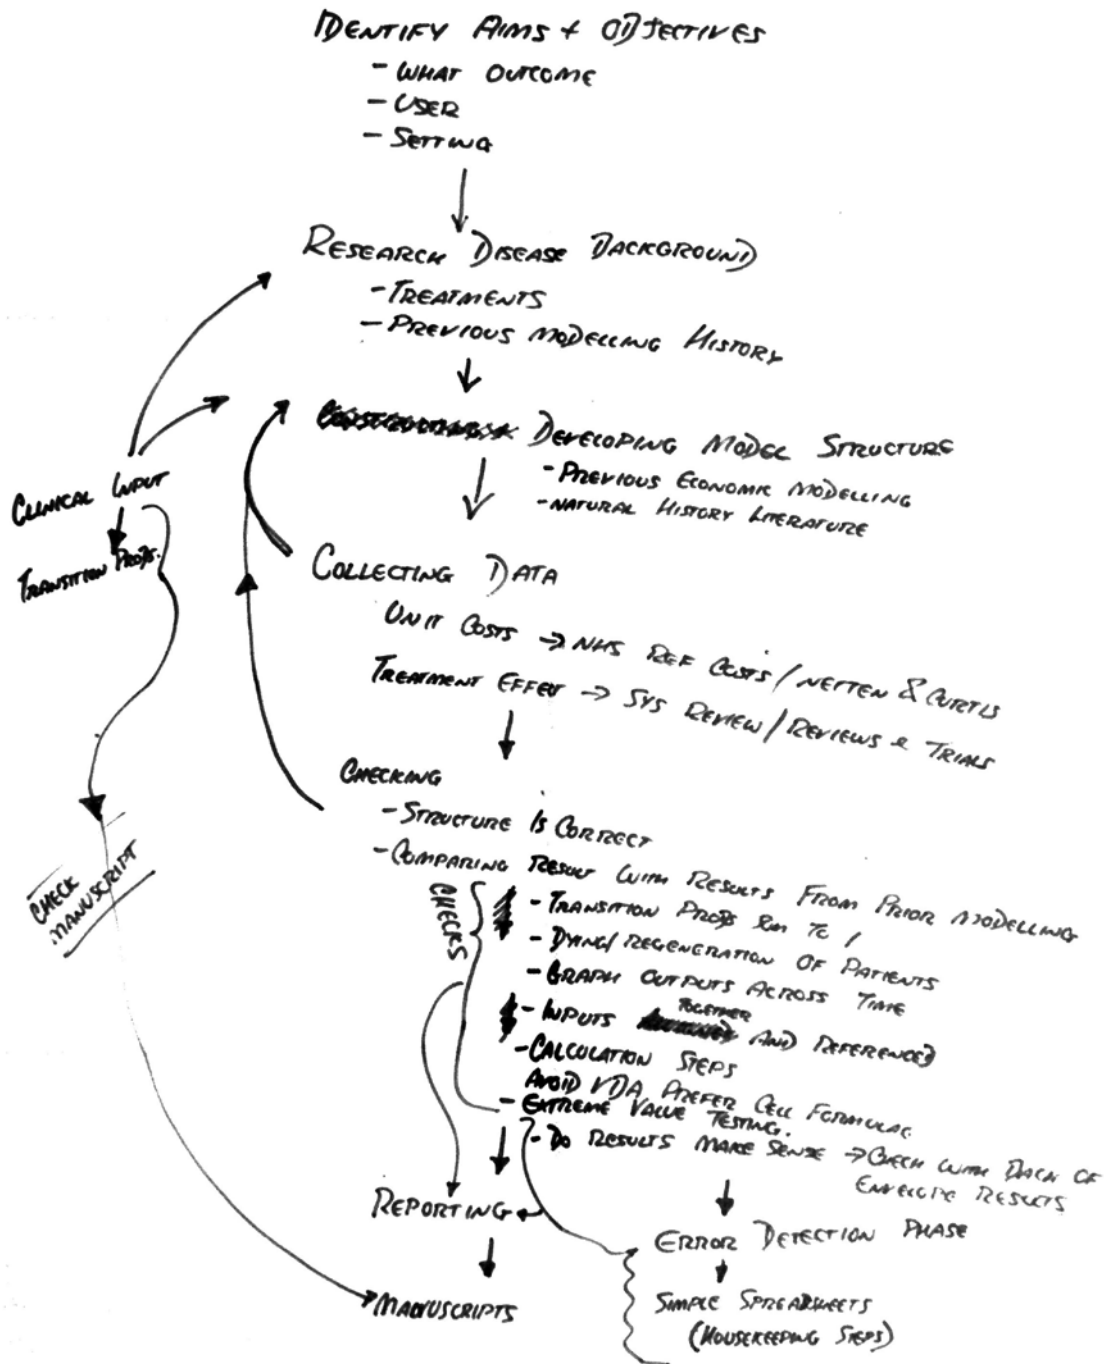 IDENTIFY AIMS + OBJECTIVES
- WHAT OUTCOME
- USER
- SETTING
RESEARCH DISEASE BACKGROUND
- TREATMENTS
- PREVIOUS MODELLING HISTORY
DEVELOPING MODEL STRUCTURE
- PREVIOUS ECONOMIC MODELLING
- NATURAL HISTORY LITERATURE
CLINICAL INPUT
TRANSITION PROBS.
COLLECTING DATA
UNIT COSTS → NHS REF COSTS / NETTEN & CURTIS
TREATMENT EFFECT → SYS REVIEW / REVIEWS & TRIALS
CHECKING
- STRUCTURE IS CORRECT
- COMPARING RESULT WITH RESULTS FROM PRIOR MODELLING
CHECK
MANUSCRIPT
CHECKS
- TRANSITION PROBS SUM TO 1
- DYING/REGENERATION OF PATIENTS
- GRAPH OUTPUTS ACROSS TIME
- INPUTS TOGETHER AND REFERENCED
- CALCULATION STEPS
AVOID VBA PREFER CELL FORMULAE
- EXTREME VALUE TESTING.
- DO RESULTS MAKE SENSE → CHECK WITH BACK OF
ENVELOPE RESULTS
REPORTING
ERROR DETECTION PHASE
MANUSCRIPTS
SIMPLE SPREADSHEETS
(HOUSEKEEPING STEPS)